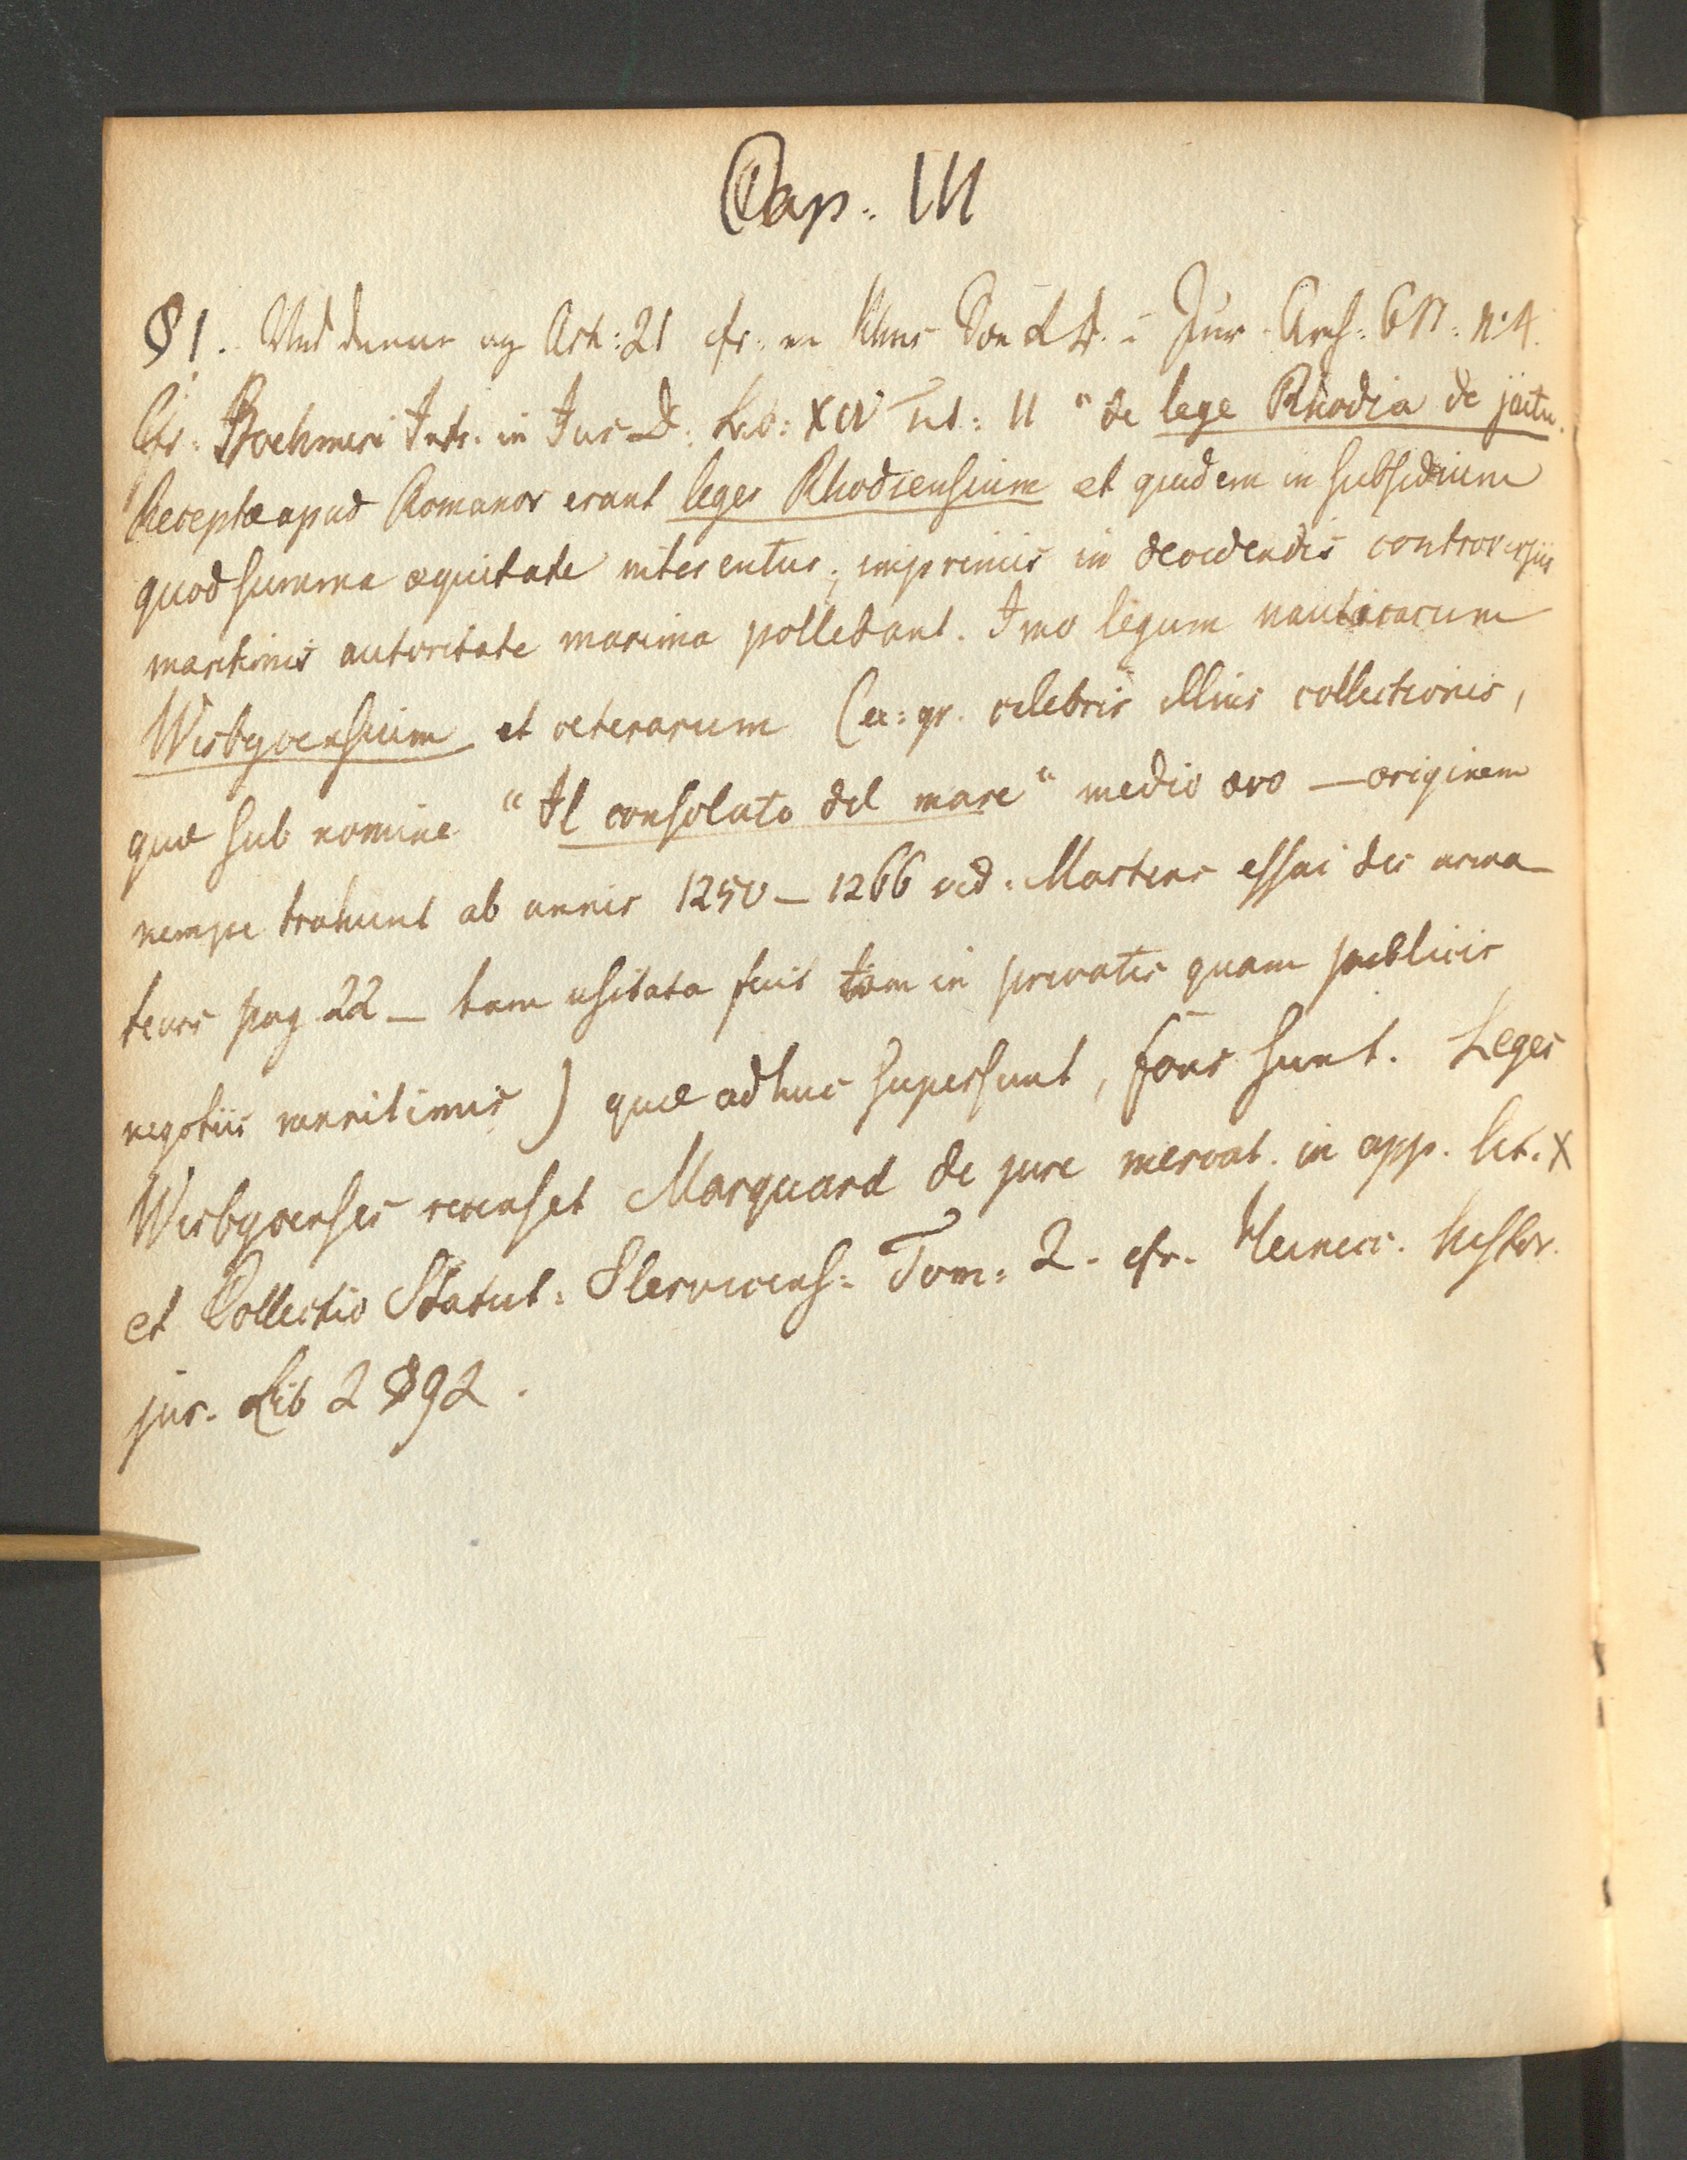 Cap: III
§ 1. Ved denne og Art: 21 cfr. en Dom i Jur. Arch: 6 n: 4.
Cfr. Boehmeri Intr. in Jus D: Lib: XIV Tit: II "de lege Rhodia de jactu.
Receptæ apud Romanos erant leges Rhodiensium et quidem in subsidium
quod summa æquitate niterentur; imprimis in decidendis controversiis
maritimis autoritate maxima pollebant. Imo legum nauticarum
Wisbycensium et ceterarum (ex: gr. celebris illius collectionis,
quæ sub nomine "Il consolato del mare" medio ævo — originem
nempe trahunt ab annis 1250 – 1266 vid. Martens essai des arma
teurs pag 22 — tam usitata fuit tam in privatis quam publicis
negotiis maritimis) quæ adhuc supersunt, fons sunt. Leges
Wisbycenses recenset Marquard de jure mercat. in app. lit. X
et Collectio Statut: Slesvicens: Tom: 2. cfr. Heinecc. histor.
jur. Lib 2 § 92.